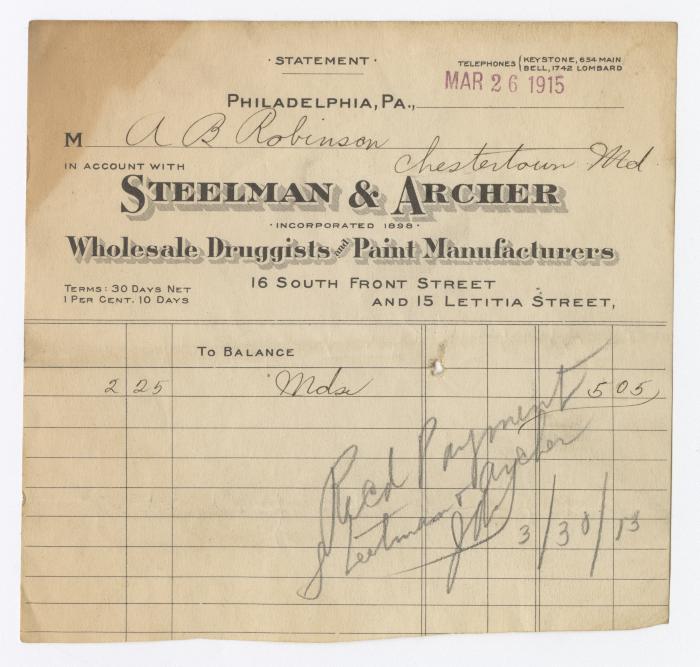 · STATEMENT ·
TELEPHONES { KEYSTONE, 654 MAIN
BELL, 1742 LOMBARD
MAR 26 1915
PHILADELPHIA, PA.,
M A B Robinson
Chestertown Md.
IN ACCOUNT WITH
STEELMAN & ARCHER
· INCORPORATED 1898 ·
Wholesale Druggists and Paint Manufacturers
TERMS: 30 DAYS NET
1 PER CENT. 10 DAYS
16 SOUTH FRONT STREET
AND 15 LETITIA STREET,
TO BALANCE
2 25 Mdse 5 05
Recd Payment
Steelman & Archer
3/30/15